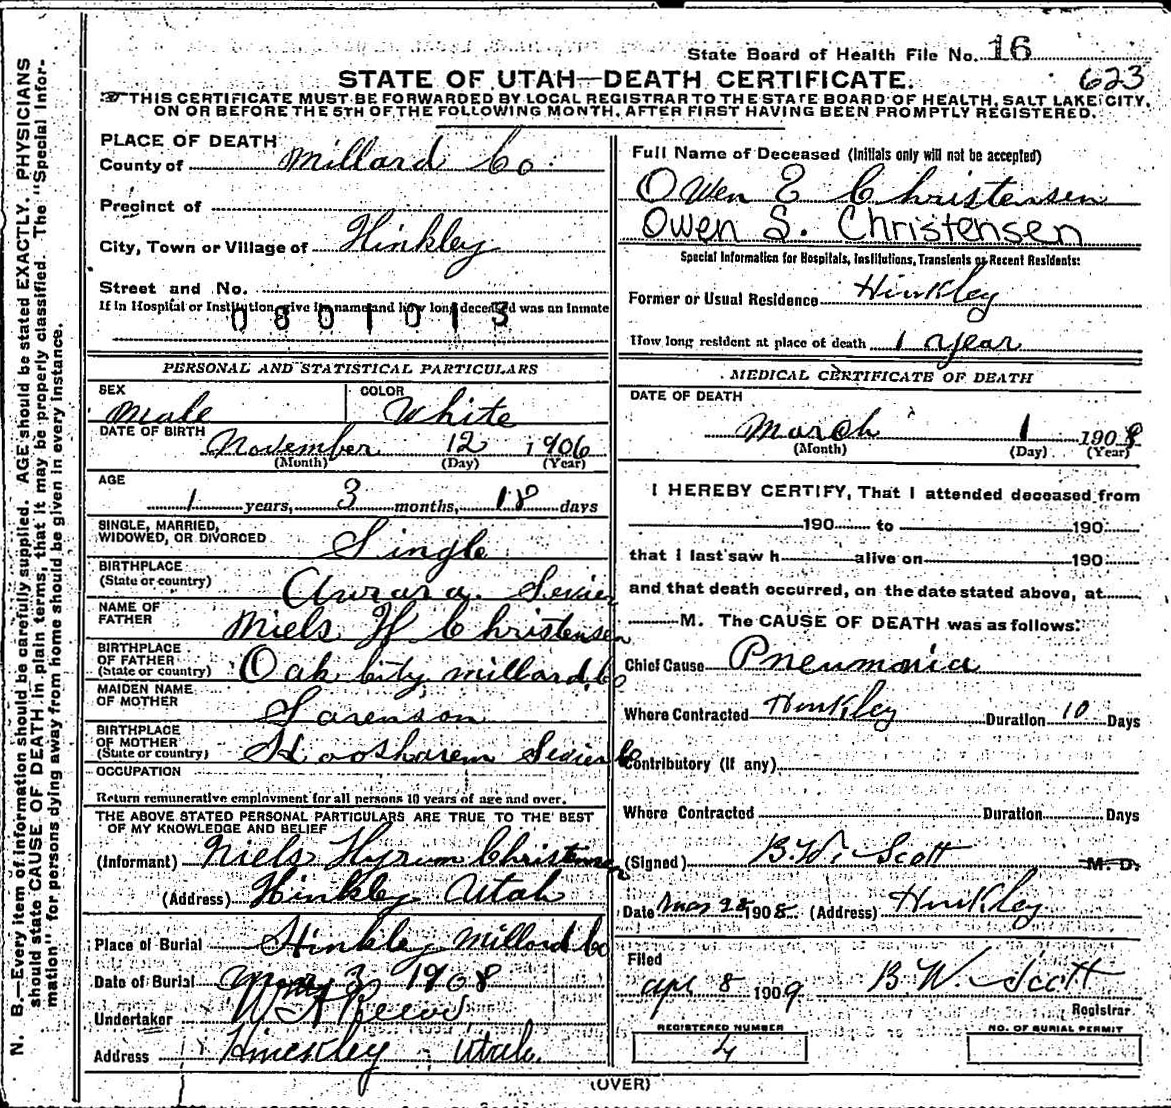 State Board of Health File No. 16
STATE OF UTAH—DEATH CERTIFICATE.
623
THIS CERTIFICATE MUST BE FORWARDED BY LOCAL REGISTRAR TO THE STATE BOARD OF HEALTH, SALT LAKE CITY,
ON OR BEFORE THE 5TH OF THE FOLLOWING MONTH, AFTER FIRST HAVING BEEN PROMPTLY REGISTERED.
N. B.—Every item of information should be carefully supplied. AGE should be stated EXACTLY. PHYSICIANS
should state CAUSE OF DEATH in plain terms, that it may be properly classified. The "Special Infor-
mation" for persons dying away from home should be given in every instance.
PLACE OF DEATH
County of Millard Co.
Precinct of
City, Town or Village of Hinkley
Street and No.
If in Hospital or Institution give its name and how long deceased was an inmate
0801013
PERSONAL AND STATISTICAL PARTICULARS
SEX Male COLOR White
DATE OF BIRTH November 12 1906
(Month) (Day) (Year)
AGE
1 years, 3 months, 18 days
SINGLE, MARRIED,
WIDOWED, OR DIVORCED Single
BIRTHPLACE
(State or country) Aurara. Sevier
NAME OF
FATHER Niels H Christensen
BIRTHPLACE
OF FATHER
(State or country) Oak City millard Co
MAIDEN NAME
OF MOTHER Sorenson
BIRTHPLACE
OF MOTHER
(State or country) Koosharem Sevier Co
OCCUPATION
Return remunerative employment for all persons 10 years of age and over.
THE ABOVE STATED PERSONAL PARTICULARS ARE TRUE TO THE BEST
OF MY KNOWLEDGE AND BELIEF
(Informant) Niels Hyrum Christensen
(Address) Hinkley Utah
Place of Burial Hinkley Millard Co
Date of Burial Mar 3 1908
Undertaker W A Reeve
Address Hinckley Utah.
Full Name of Deceased (Initials only will not be accepted)
Owen E Christensen
Owen S. Christensen
Special Information for Hospitals, Institutions, Transients or Recent Residents:
Former or Usual Residence Hinkley
How long resident at place of death 1 year
MEDICAL CERTIFICATE OF DEATH
DATE OF DEATH
March 1 1908
(Month) (Day) (Year)
I HEREBY CERTIFY, That I attended deceased from
190 to 190
that I last saw h alive on 190
and that death occurred, on the date stated above, at
M. The CAUSE OF DEATH was as follows:
Chief Cause Pneumonia
Where Contracted Hinkley Duration 10 Days
Contributory (if any)
Where Contracted Duration Days
(Signed) B.W. Scott M. D.
Date Mar 28 1908 (Address) Hinkley
Filed
apr 8 1909 B. W. Scott
Registrar
REGISTERED NUMBER
4
NO. OF BURIAL PERMIT
(OVER)